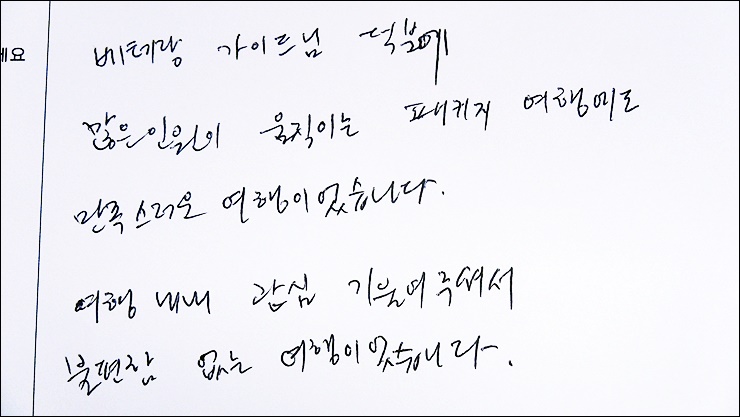 세요
베테랑 가이드님 덕분에
많은 인원이 움직이는 패키지 여행에도
만족스러운 여행이었습니다.
여행 내내 관심 기울여주셔서
불편함 없는 여행이었습니다.